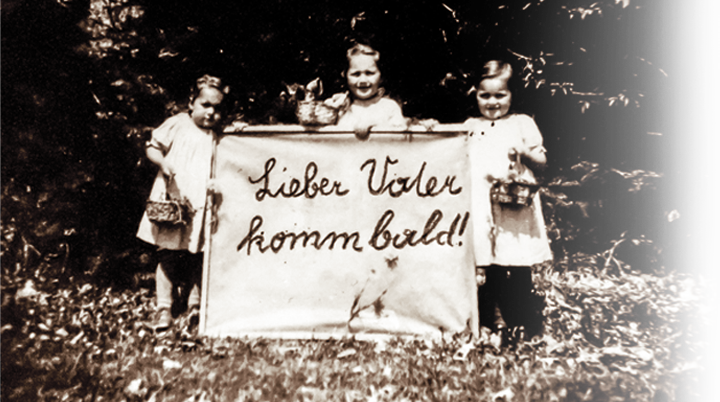 Lieber Vater
komm bald!